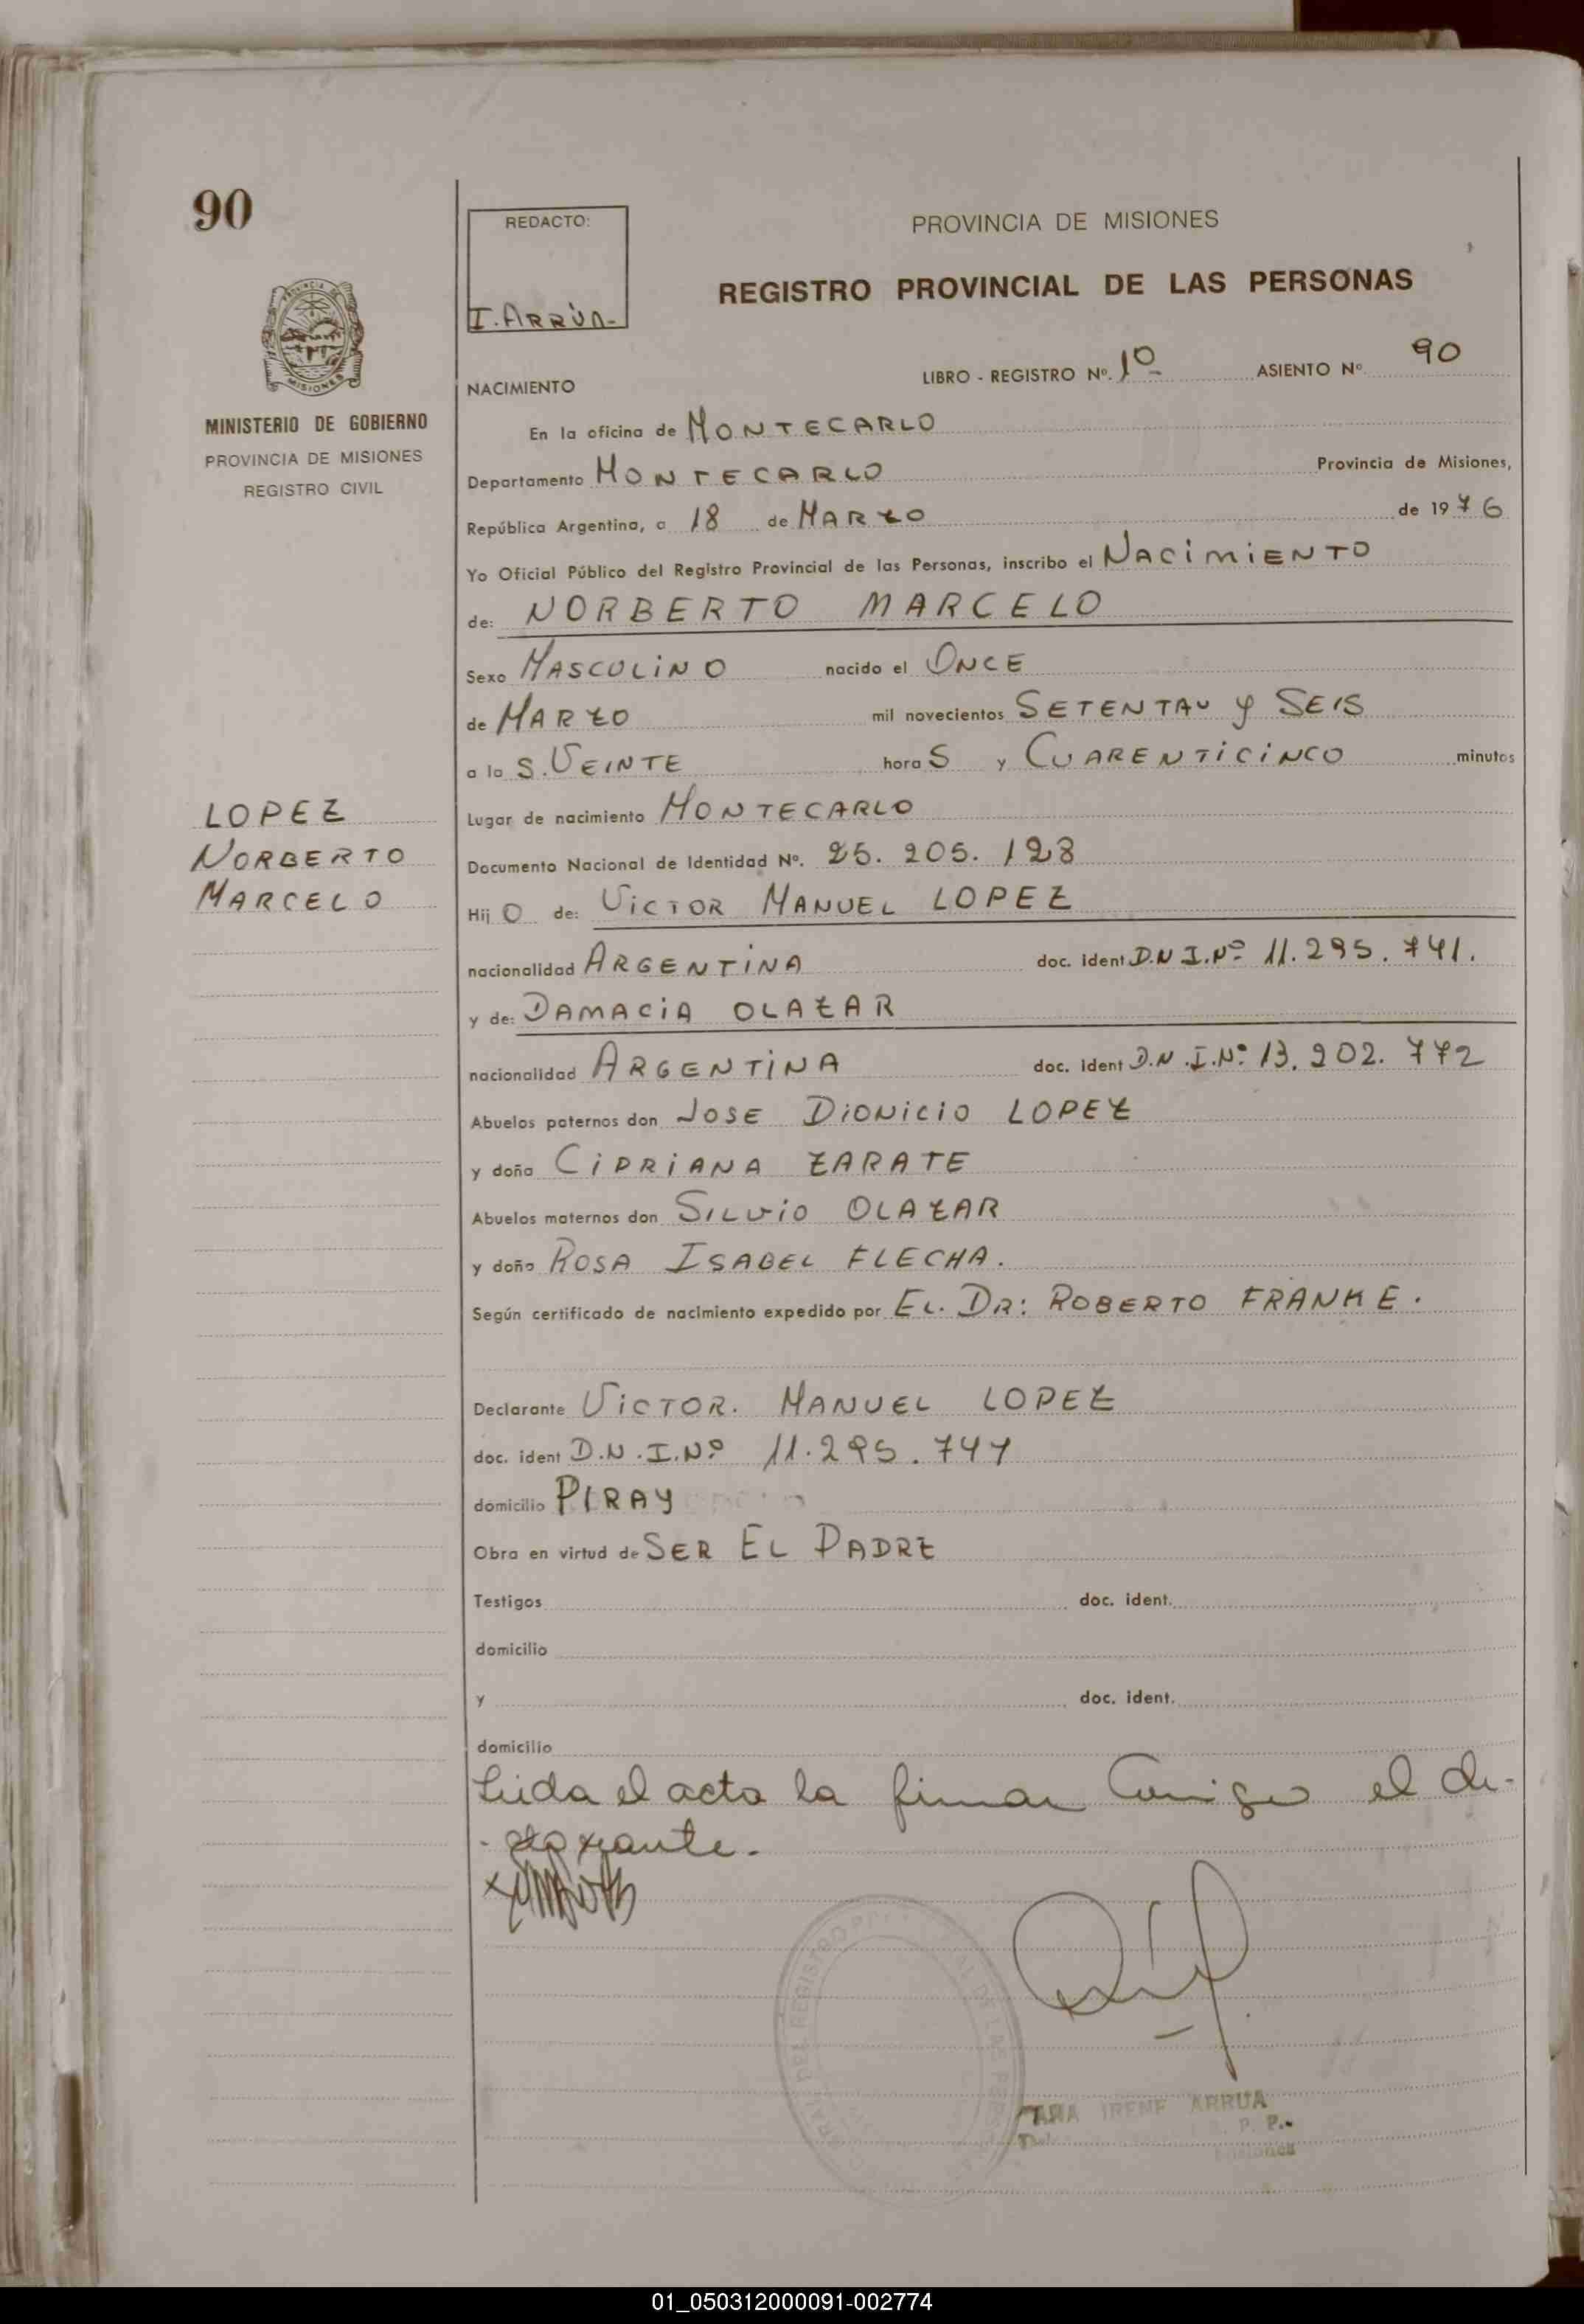 90
REDACTO:
I. ARRÚA-
PROVINCIA DE MISIONES
REGISTRO PROVINCIAL DE LAS PERSONAS
PROVINCIA DE MISIONES
MINISTERIO DE GOBIERNO
PROVINCIA DE MISIONES
REGISTRO CIVIL
NACIMIENTO LIBRO - REGISTRO Nº. 1º ASIENTO Nº 90
En la oficina de MONTECARLO
Departamento MONTECARLO Provincia de Misiones,
República Argentina, a 18 de MARZO de 1976
Yo Oficial Público del Registro Provincial de las Personas, inscribo el NACIMIENTO
de: NORBERTO MARCELO
Sexo MASCULINO nacido el ONCE
de MARZO mil novecientos SETENTA y SEIS
a las VEINTE horas y CUARENTICINCO minutos
LOPEZ
NORBERTO
MARCELO
Lugar de nacimiento MONTECARLO
Documento Nacional de Identidad Nº. 25.205.128
Hijo de: VICTOR MANUEL LOPEZ
nacionalidad ARGENTINA doc. ident D.N I.Nº 11.295.741.
y de: DAMACIA OLAZAR
nacionalidad ARGENTINA doc. ident D.N.I.Nº 13.202.772
Abuelos paternos don JOSE DIONICIO LOPEZ
y doña CIPRIANA ZARATE
Abuelos maternos don SILVIO OLAZAR
y doña ROSA ISABEL FLECHA.
Según certificado de nacimiento expedido por EL. DR: ROBERTO FRANKE.
Declarante VICTOR. MANUEL LOPEZ
doc. ident D.N.I.Nº 11.295.741
domicilio PIRAY
Obra en virtud de SER EL PADRE
Testigos doc. ident.
domicilio
y doc. ident.
domicilio
Leida el acta la firman Conigo el de-
-clarante.
ANA IRENE ARRUA
01_050312000091-002774